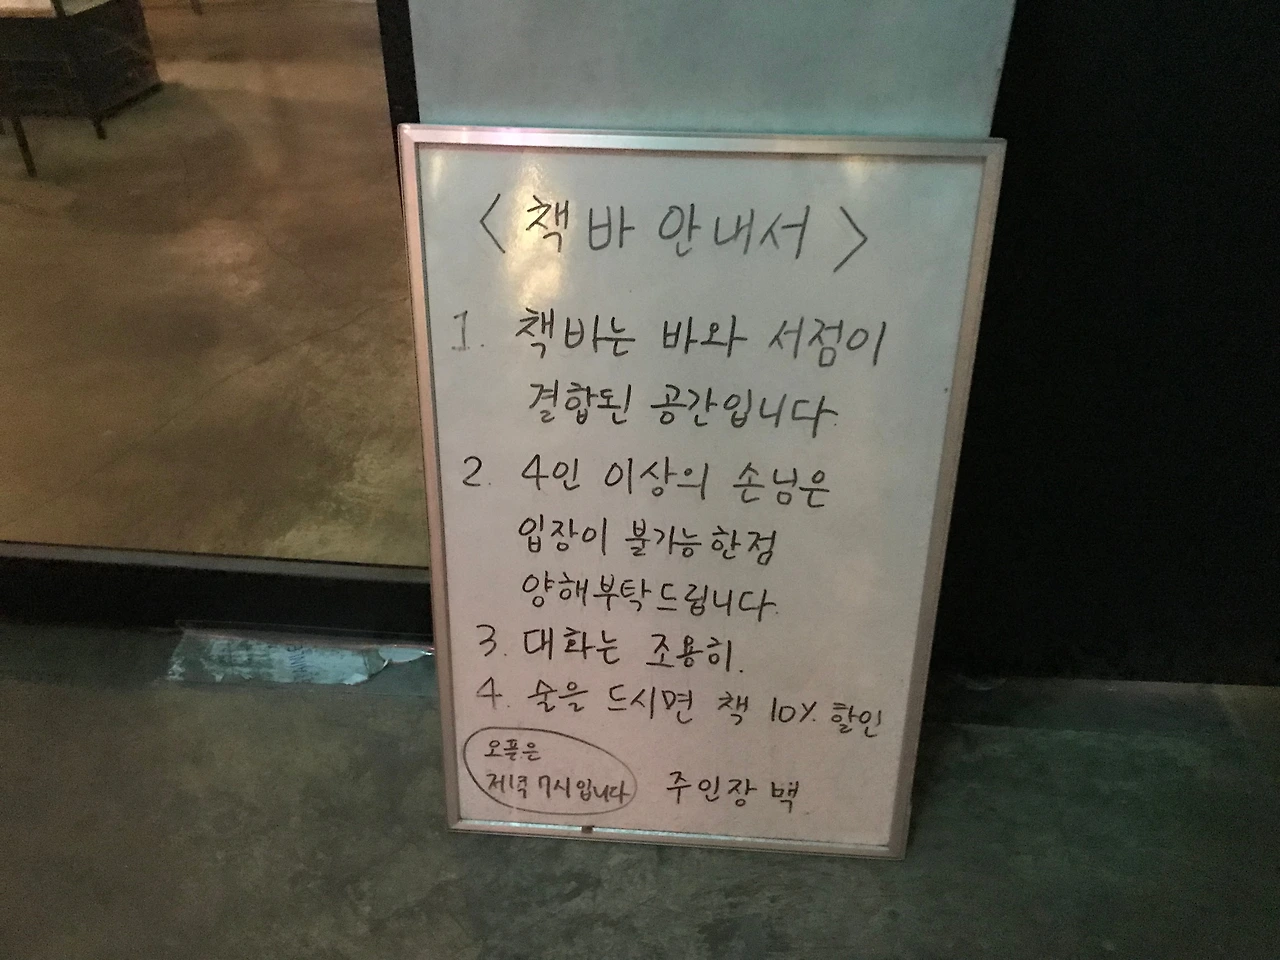 < 책바 안내서 >
1. 책바는 바와 서점이
결합된 공간입니다.
2. 4인 이상의 손님은
입장이 불가능한점
양해부탁드립니다.
3. 대화는 조용히.
4. 술을 드시면 책 10% 할인
오픈은
저녁 7시입니다
주인장 백